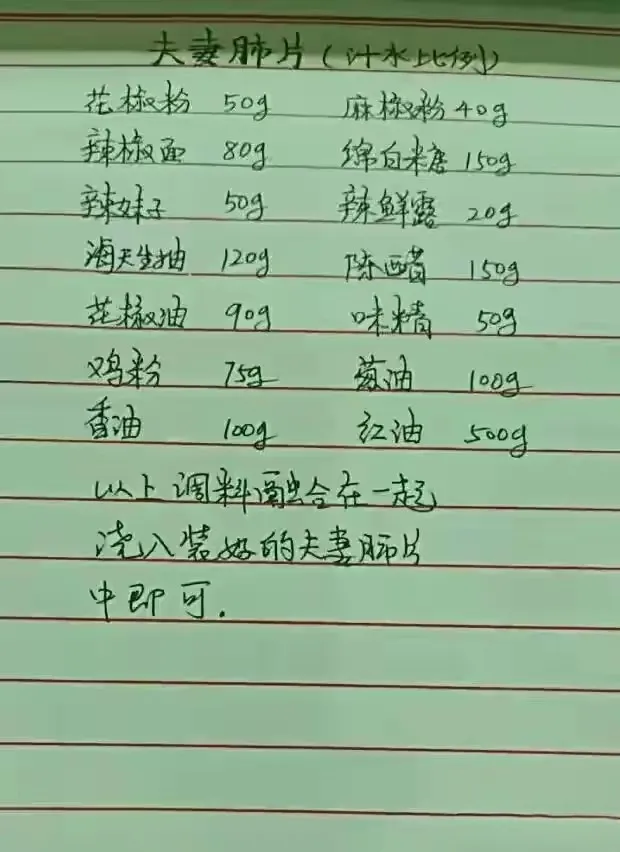 夫妻肺片(汁水比例)
花椒粉 50g 麻椒粉 40g
辣椒面 80g 绵白糖 150g
辣妹子 50g 辣鲜露 20g
海天生抽 120g 陈醋 150g
花椒油 90g 味精 50g
鸡粉 75g 葱油 100g
香油 100g 红油 500g
以上调料融合在一起
浇入装好的夫妻肺片
中即可.